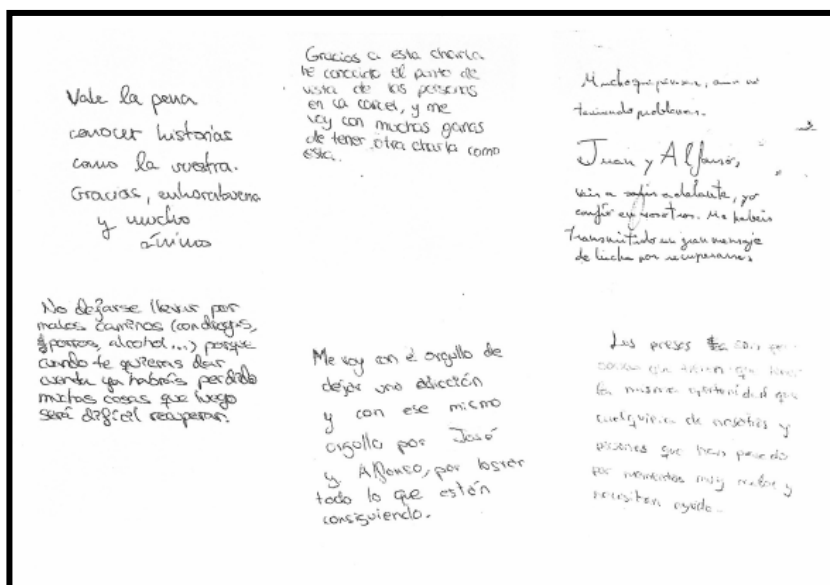 Vale la pena
conocer historias
como la vuestra.
Gracias, enhorabuena
y mucho
ánimos
Gracias a esta charla
he conocido el punto de
vista de las personas
en la carcel, y me
voy con muchas ganas
de tener otra charla como
esta.
Mucho que pensar, aun no
teniendo problemas.
Juan y Alfonso,
vais a salir adelante, yo
confío en vosotros. Me habéis
transmitido un gran mensaje
de lucha por recuperarnos
No dejarse llevar por
malos caminos (con drogas,
porros, alcohol...) porque
cuando te quieras dar
cuenta ya habrás perdido
muchas cosas que luego
será difícil recuperar.
Me voy con el orgullo de
dejar una adicción
y con ese mismo
orgullo por José
y Alfonso, por
todo lo que están
consiguiendo.
Los presos son
que tienen que
la misma oportunidad que
cualquiera de nosotros y
personas que han pasado
por momentos muy malos y
necesitan ayuda.